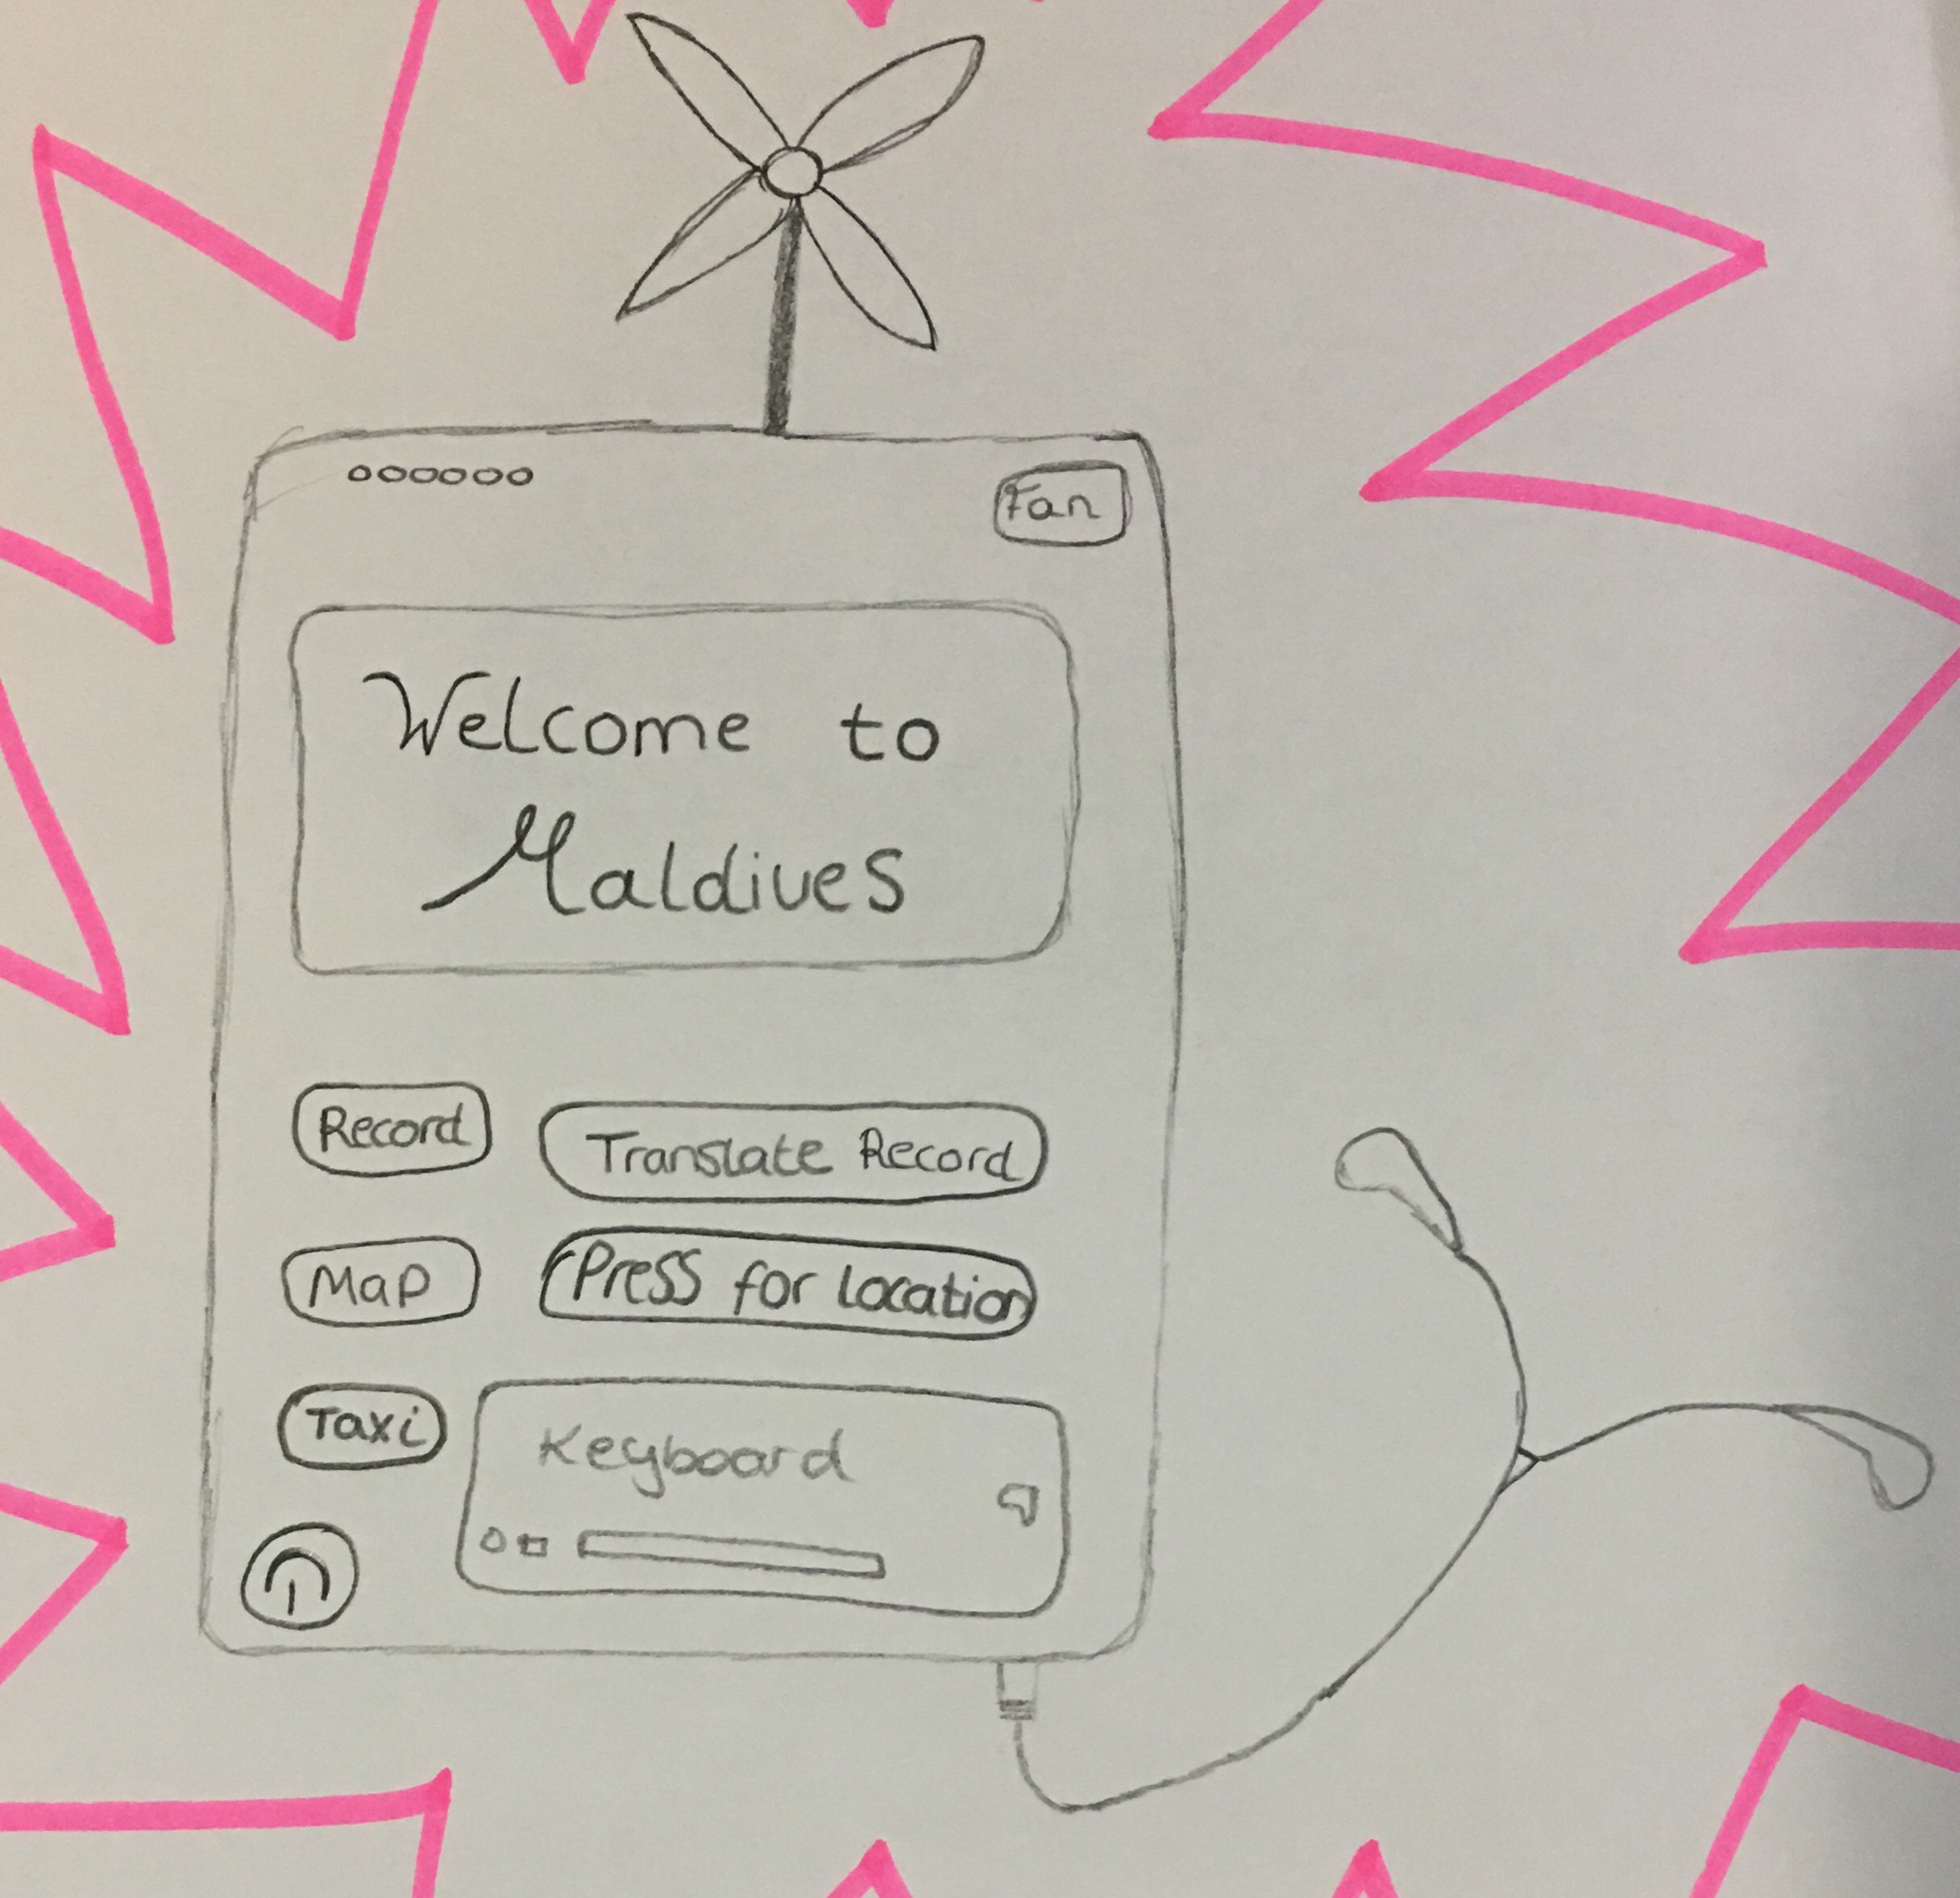 Fan
Welcome to
Maldives
Record
Translate Record
Map
Press for location
Taxi
Keyboard